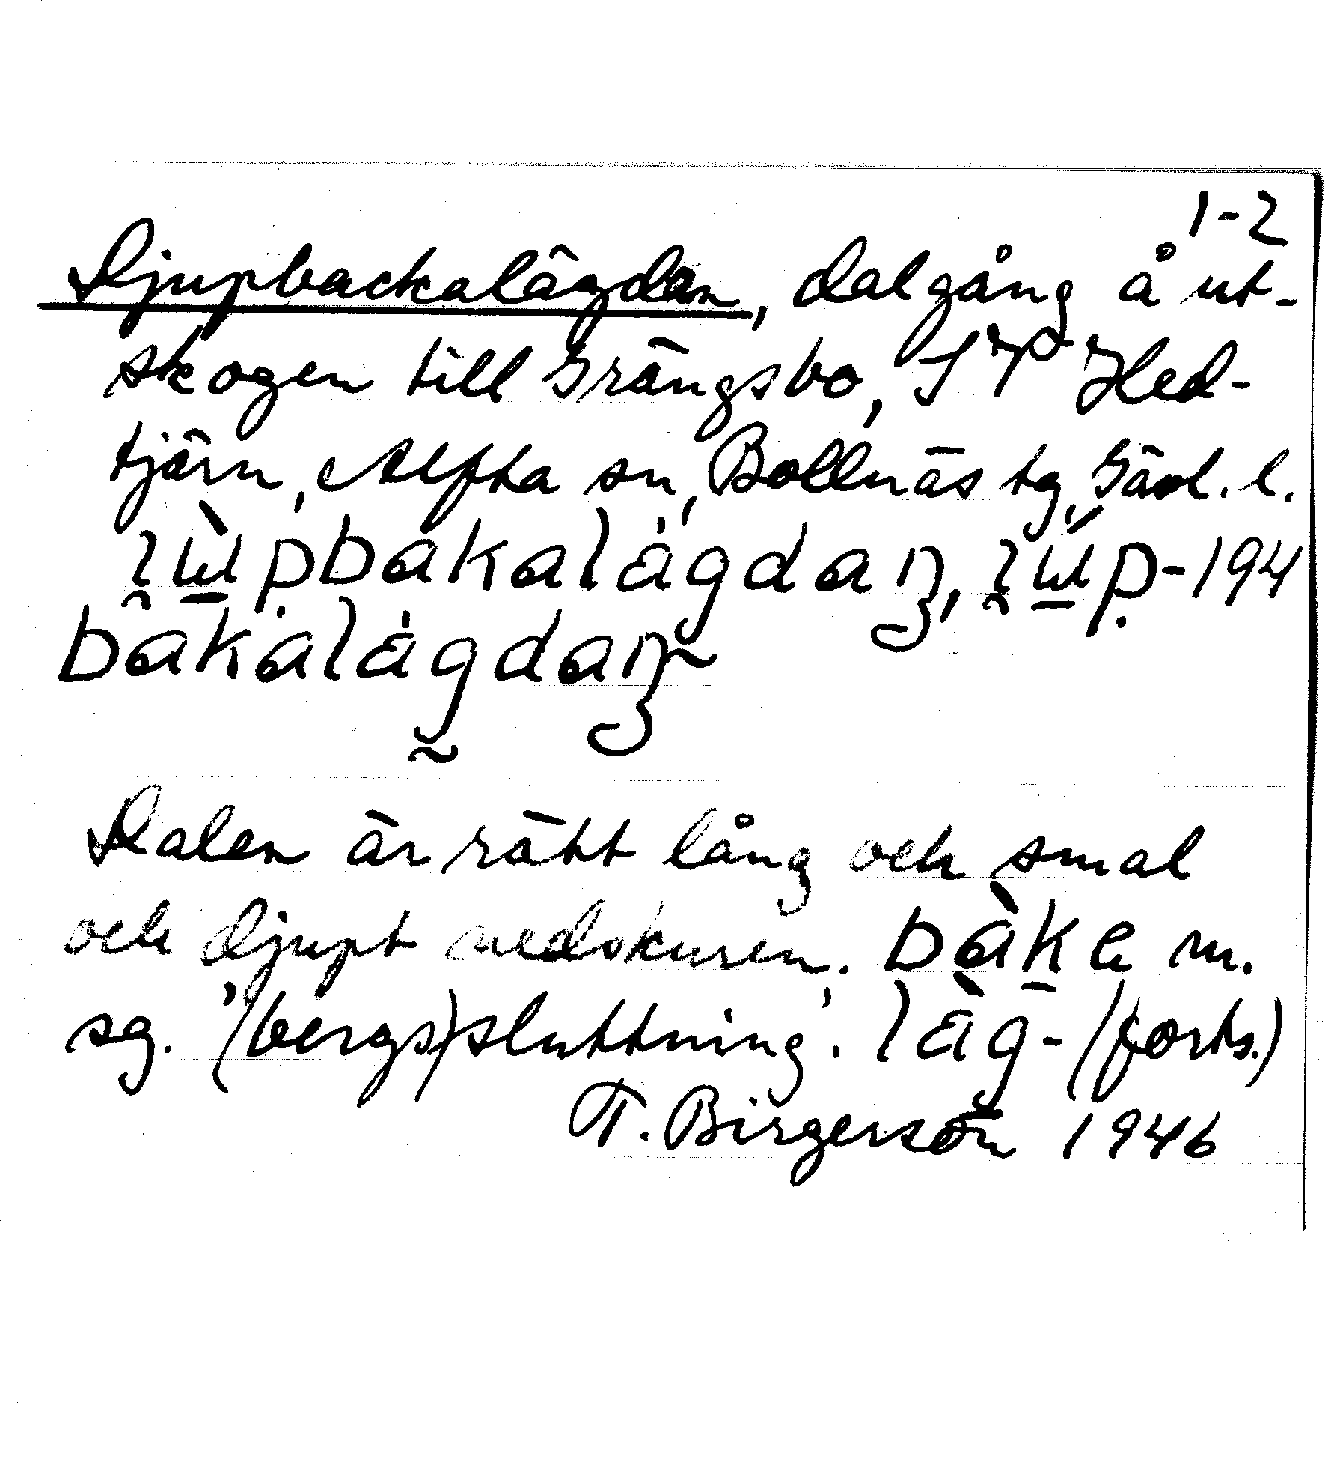 1-2
Djupbackalägdan, dalgång å ut-
skogen till Grängsbo, SV Hed-
tjärn, Alfta sn, Bollnäs tg, Gävl. l.
bakalágdaŋ, -194
bakalágdaŋ
Dalen är rätt lång och smal
och djupt nedskuren. bàka m.
sg. '(bergs)sluttning'. làg- (forts.)
T. Birgerson 1946